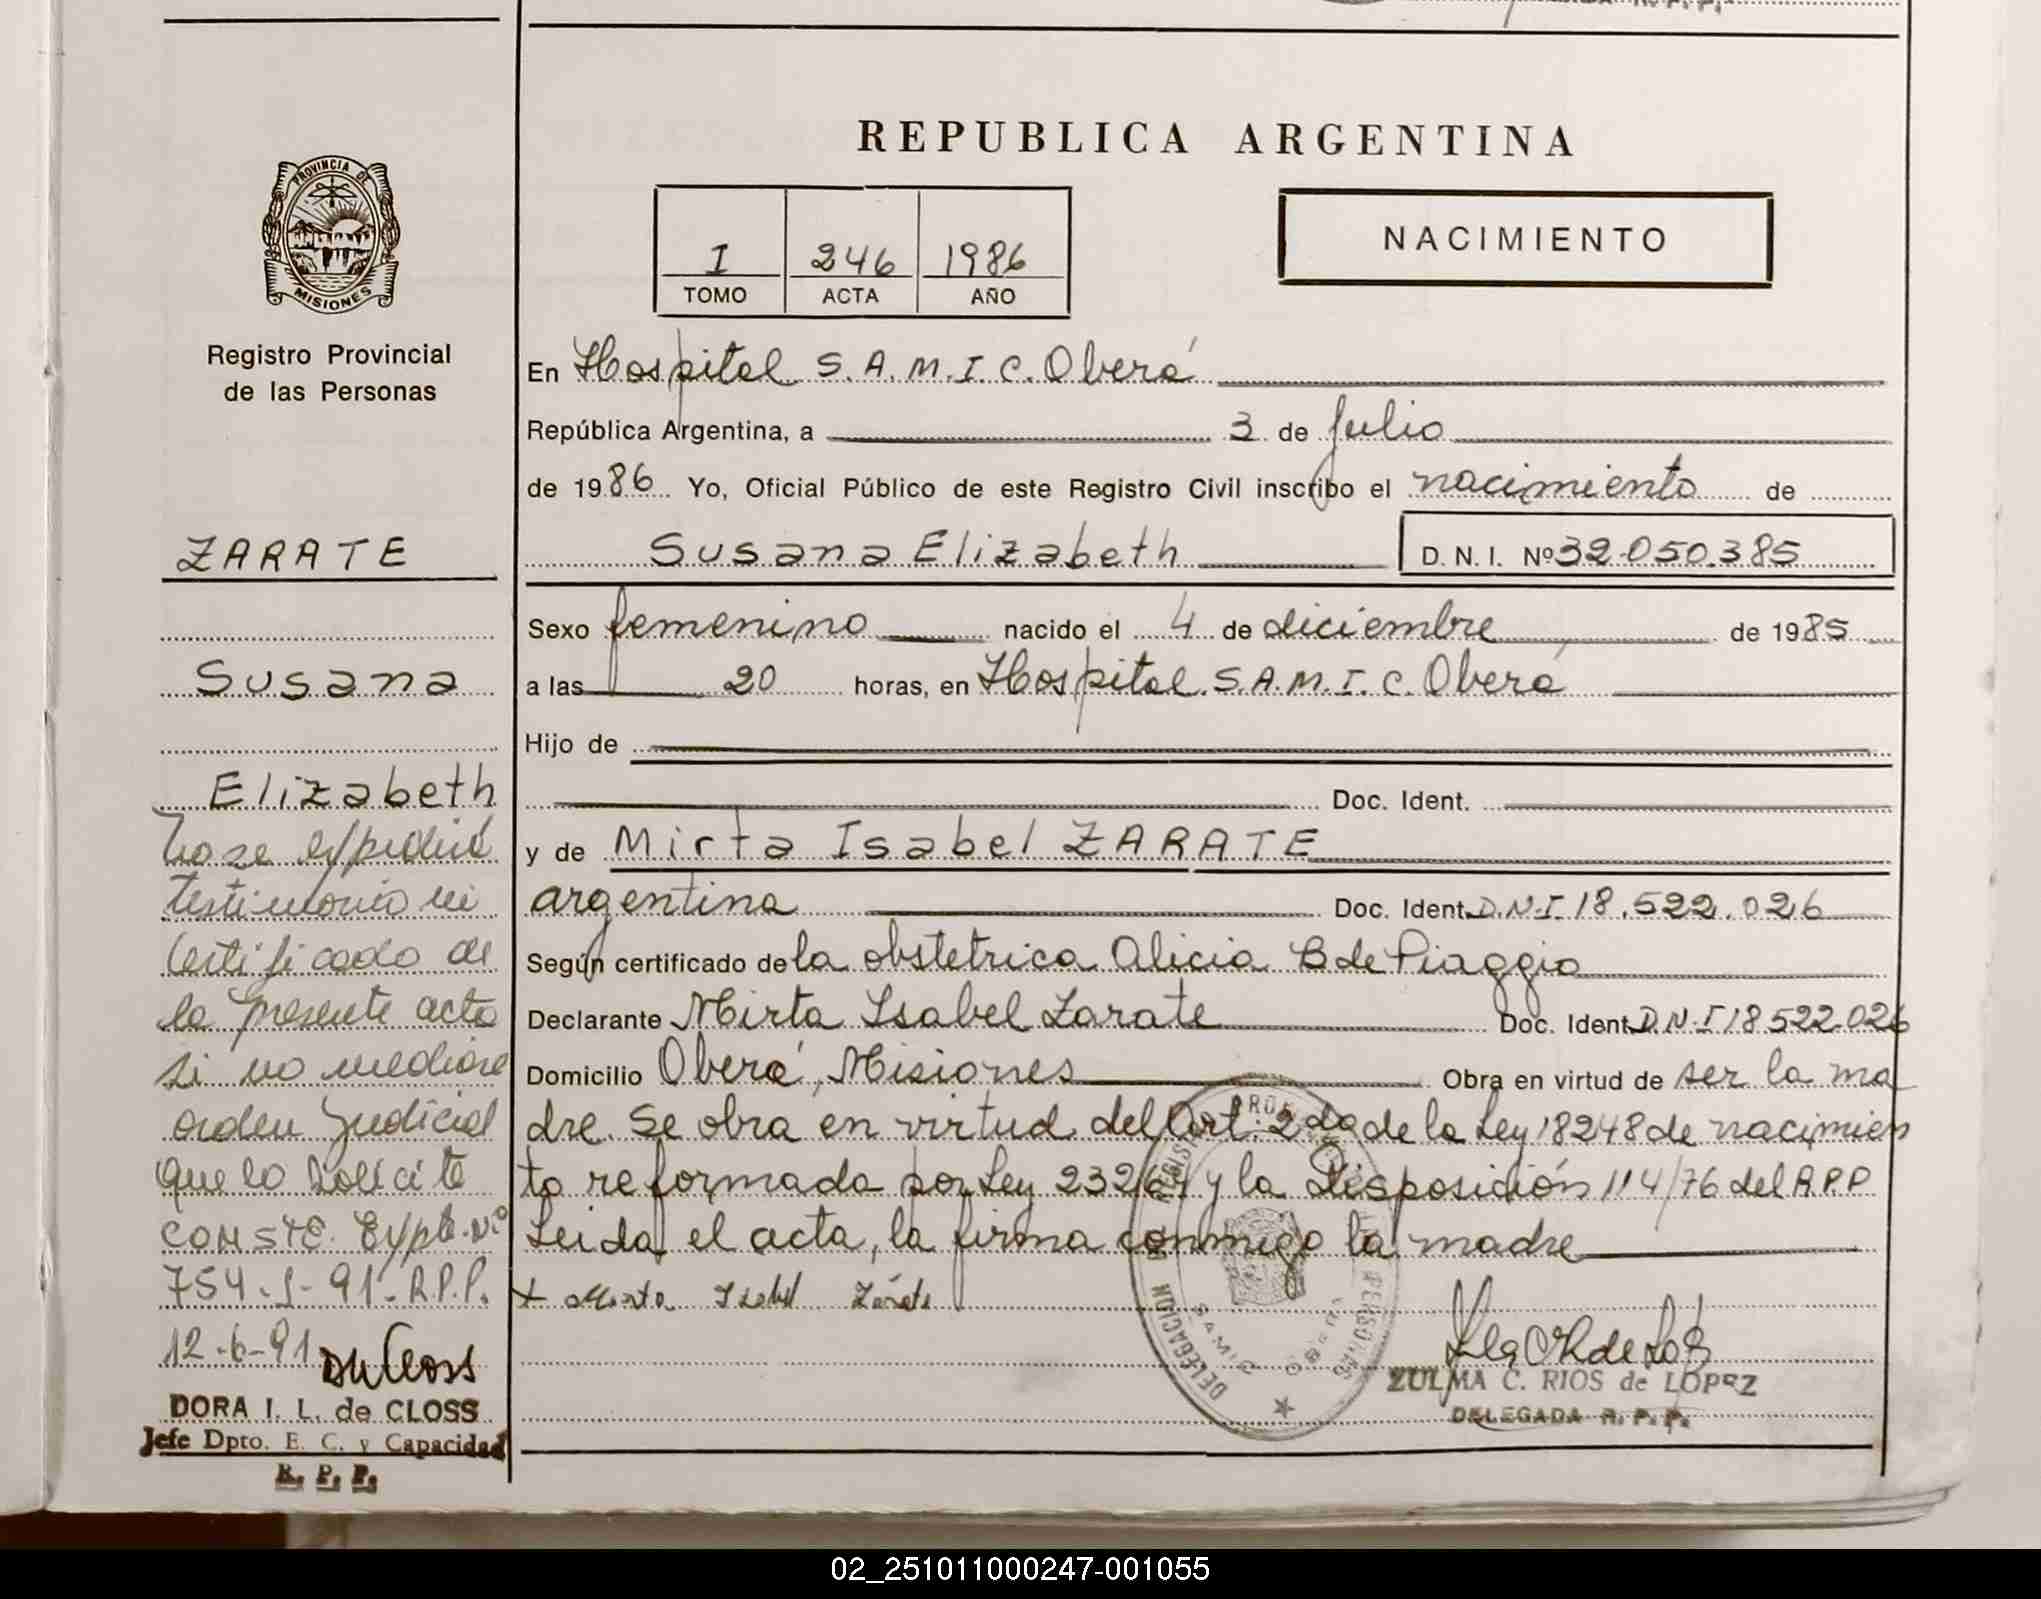 REPUBLICA ARGENTINA
PROVINCIA DE
MISIONES
Registro Provincial
de las Personas
I 246 1986
TOMO ACTA AÑO
NACIMIENTO
En Hospital S.A.M.I.C. Oberá
República Argentina, a 3 de Julio
de 1986 Yo, Oficial Público de este Registro Civil inscribo el nacimiento de
Susana Elizabeth D.N.I. Nº 32.050.385
Sexo femenino nacido el 4 de diciembre de 1985
a las 20 horas, en Hospital S.A.M.I.C. Oberá
Hijo de
Doc. Ident.
y de Mirta Isabel ZARATE
argentina Doc. Ident. D.N.I 18.522.026
Según certificado de la obstetrica Alicia B de Piaggio
Declarante Mirta Isabel Zarate Doc. Ident. D.N.I 18522026
Domicilio Oberá, Misiones Obra en virtud de ser la ma
dre. Se obra en virtud del Art. 2da de la Ley 18248 de nacimien
to reformada por Ley 23264 y la Disposición 114/76 del R.P.P
Leida el acta, la firma conmigo la madre
+ Mirta Isabel Zárate
ZULMA C. RIOS de LOPEZ
DELEGADA R. P. P.
ZARATE
Susana
Elizabeth
No se expedirá
testimonio ni
certificado de
la presente acta
si no mediare
orden judicial
que lo solicite
CONSTE. Expte. Nº
754-J-91-R.P.P.
12-6-91
DORA I. L. de CLOSS
Jefe Dpto. E. C. y Capacidad
R. P. P.
02_251011000247-001055